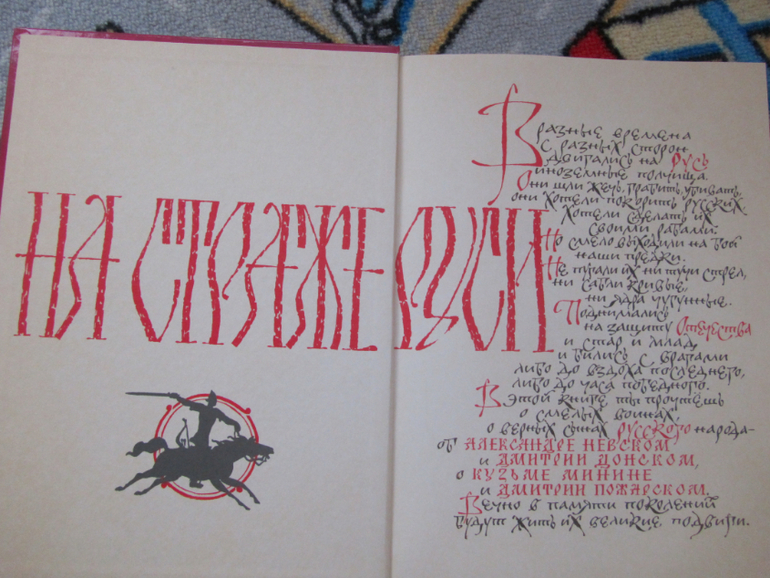 НА СТРАЖЕ РУСИ
В разные времена
с разных сторон
двигались на Русь
иноземные полчища.
Они шли жечь, грабить, убивать,
они хотели покорить русских.
Хотели сделать их
своими рабами.
Но смело выходили на бой
наши предки.
Не пугали их ни тучи стрел,
ни сабли кривые,
ни ядра чугунные.
Поднимались
на защиту Отечества
и стар и млад
и бились с врагами
либо до вздоха последнего,
либо до часа победного.
В этой книге ты прочтёшь
о смелых воинах,
о верных сынах русского народа-
об АЛЕКСАНДРЕ НЕВСКОМ
и ДМИТРИИ ДОНСКОМ,
о КУЗЬМЕ МИНИНЕ
и ДМИТРИИ ПОЖАРСКОМ.
Вечно в памяти поколений
будут жить их великие подвиги.